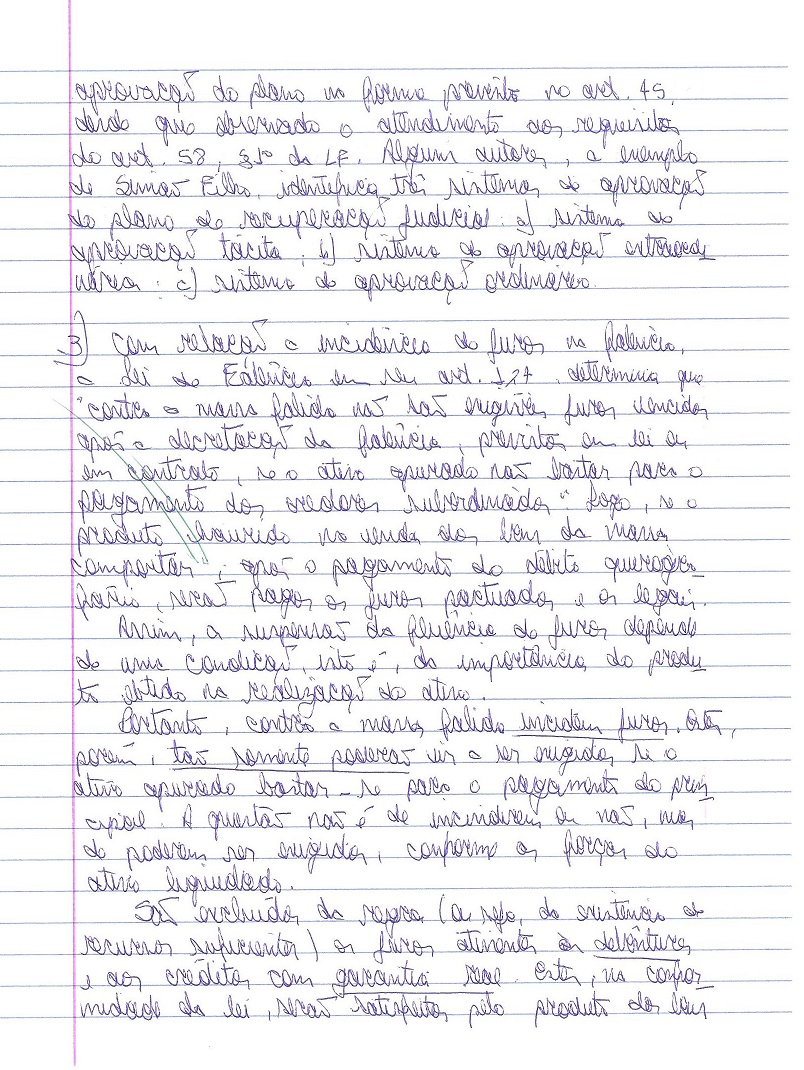 aprovação do plano na forma prevista no art. 45,
desde que observado o atendimento aos requisitos
do art. 58, §1º da LF. Alguns autores, a exemplo
de Simão Filho, identifica três sistemas de aprovação
do plano de recuperação judicial: a) sistema de
aprovação tácita; b) sistema de aprovação extraordi_
nária; c) sistema de aprovação ordinário.
3) Com relação a incidência de juros na falência,
a Lei de Falência em seu art. 124 determina que
"contra a massa falida não são exigíveis juros vencidos
após a decretação da falência, previstos em lei ou
em contrato, se o ativo apurado não bastar para o
pagamento dos credores subordinados". Logo, se o
produto haurido na venda dos bens da massa
comportar, após o pagamento do débito quirogra_
fário, serão pagos os juros pactuados e os legais.
Assim, a suspensão da fluência de juros depende
de uma condição, isto é, da importância do produ_
to obtido na realização do ativo.
Portanto, contra a massa falida incidem juros. Estes,
porém, tão somente poderão vir a ser exigidos se o
ativo apurado bastar-se para o pagamento do prin_
cipal. A questão não é de incindirem ou não, mas
de poderem ser exigidos, conforme as forças do
ativo liquidado.
São excluídos da regra (ou seja, da existência de
recursos suficientes) os juros atinentes às debêntures
e aos créditos com garantia real. Estes, na confor_
midade da lei, serão satisfeitos pelo produto dos bens